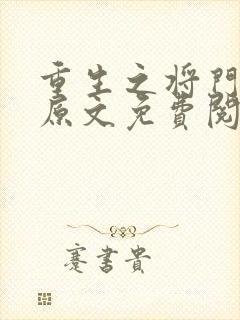 重生之将门
原文免费阅
蹇书贵